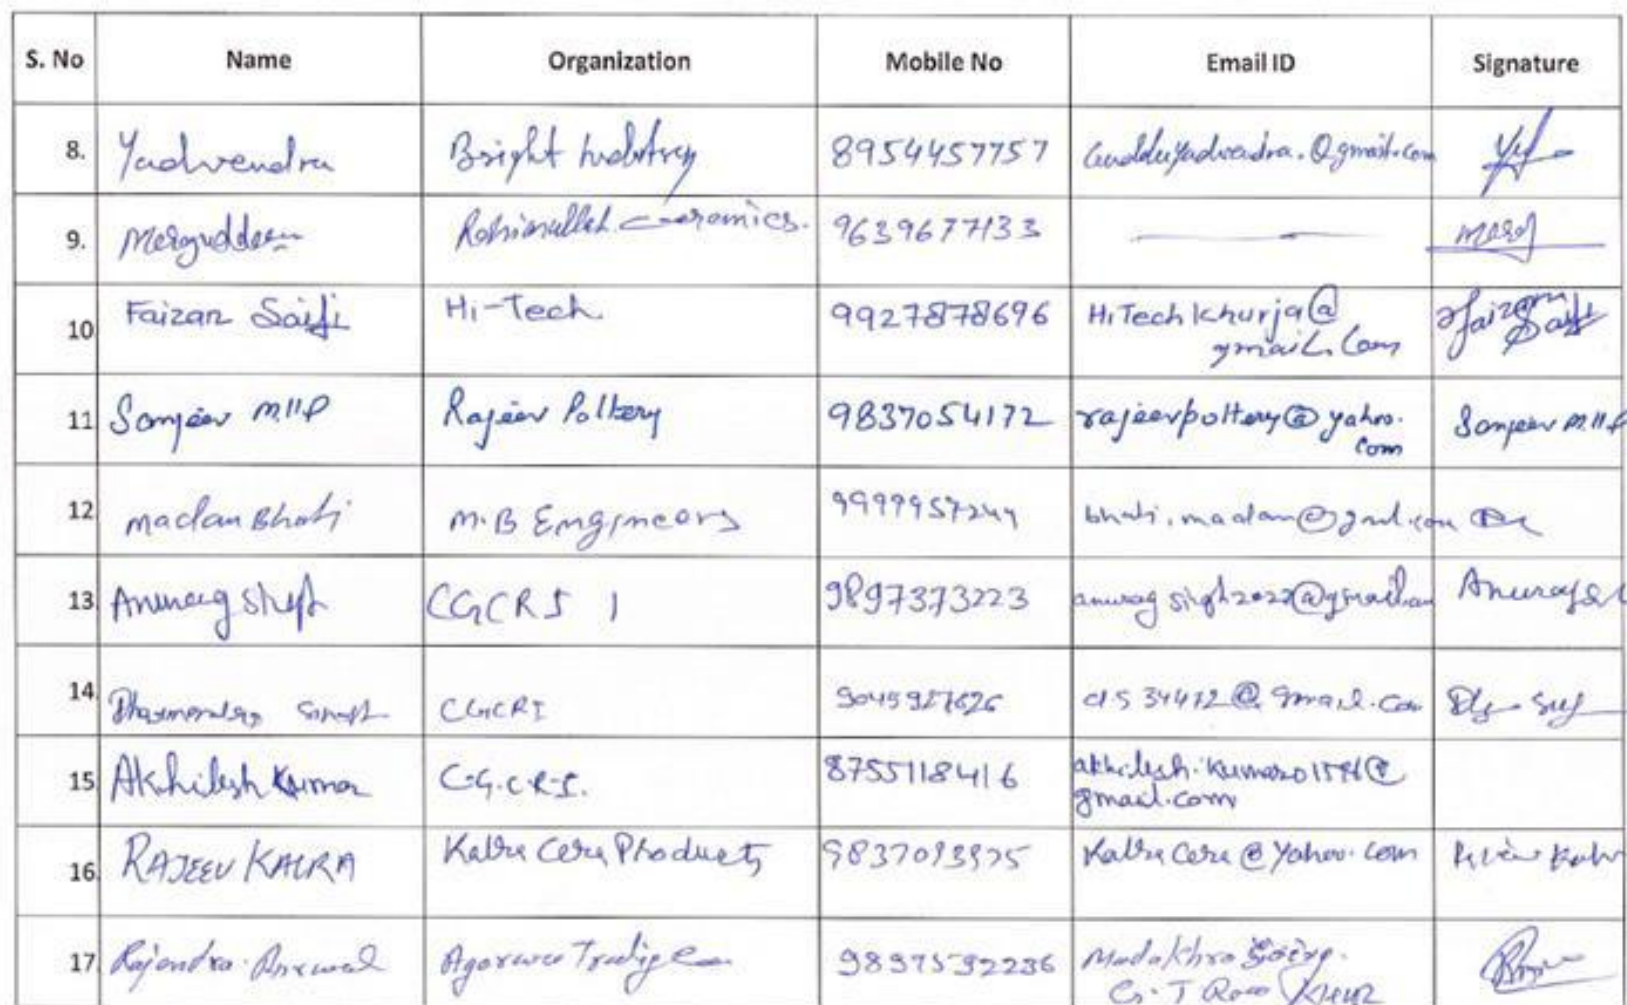 S. No Name Organization Mobile No Email ID Signature
8. Yadvendra Bright Industry 8954457757 Gudduyadvendra.@gmail.com
9. Meraguddeen Rahimullah ceramics. 9639677133
10 Faizan Saifi Hi-Tech. 9927878696 HiTechkhurja@ Faizan
gmail.com Saifi
11 Sanjeev Rajeev Pottery 9837054172 rajeevpottery@yahoo. Sanjeev
com
12 madan Bhati M.B Engineers 9999957244 bhati.madan@gmail.com
13 Anurag Singh CGCRI 9897373223 anuragsingh2022@gmail.com Anurag
14 Dharmendra Singh CGCRI 9045927626 ds34472@gmail.com
15 Akhilesh Kumar C.G.C.R.I. 8755118416 akhilesh.kumar01596@
gmail.com
16 RAJEEV KALRA Kalra Cera Products 9837093975 KalraCera@Yahoo.com
17 Rajendra Agarwal Trading 9897592236
G.T Road